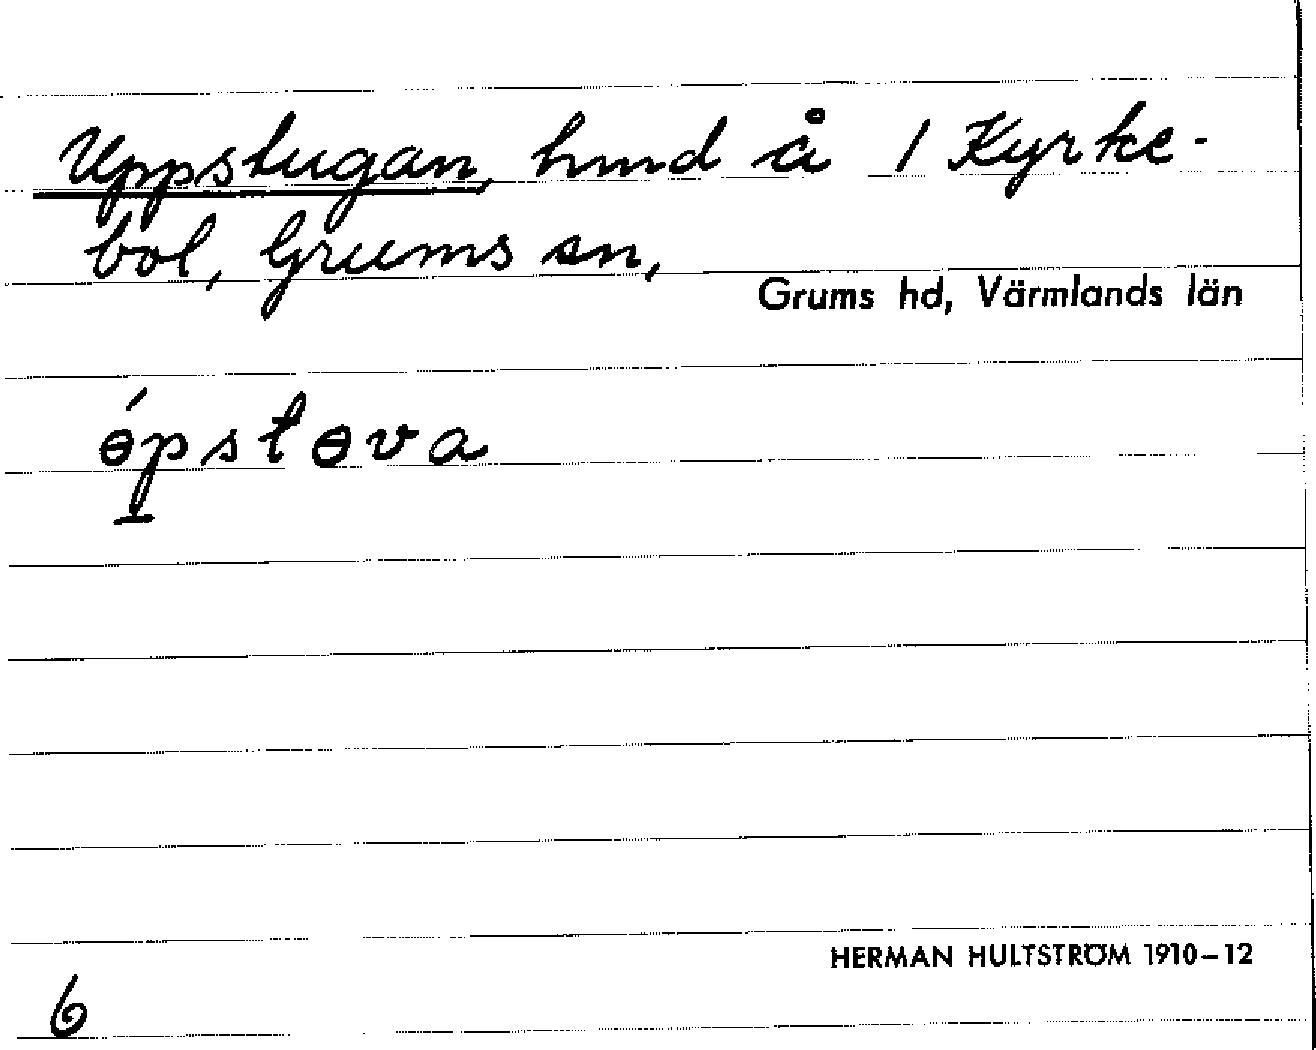 Uppstugan, hmd å 1 Kyrke-
bol, Grums sn,
Grums hd, Värmlands län
ɵ́pstɵva
HERMAN HULTSTRÖM 1910–12
6